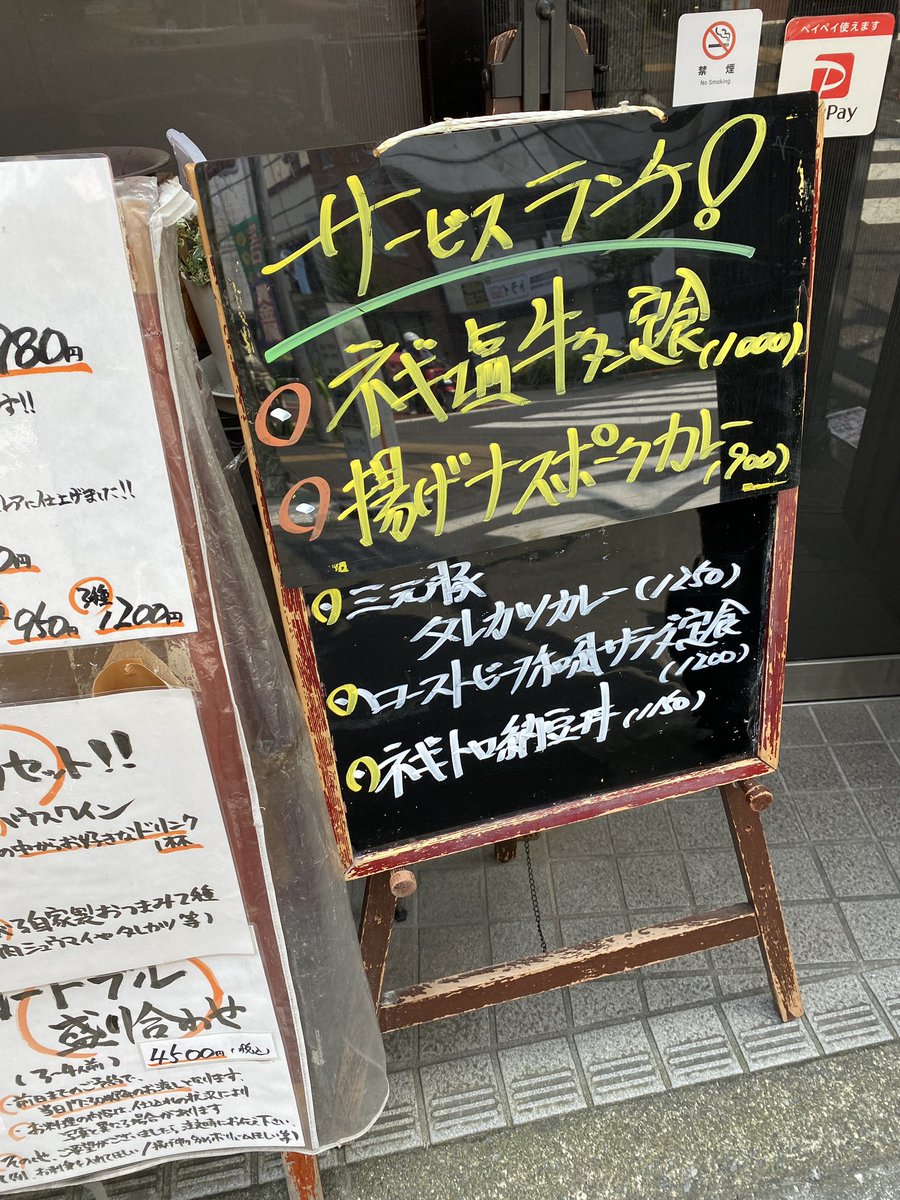 禁煙
No Smoking
ペイペイ使えます
Pay
サービスランチ!
ネギ塩牛タン定食(1000)
揚げナスポークカレー(900)
三元豚
タレカツカレー(1250)
ローストビーフ和風サラダ定食
(1200)
ネギトロ納豆丼(1150)
980円
レアに仕上げました!!
950円 3種1200円
セット!!
ハウスワイン
の中からお好きなドリンク
1杯
自家製おつまみ2種
肉シュウマイやタレカツ等)
オードブル
盛り合わせ
(3〜4人前)
4500円(税込)
前日までのご予約で、
当日17:30以降のお渡しとなります。
お料理の内容は、仕込みの状況により
写真と異なる場合があります